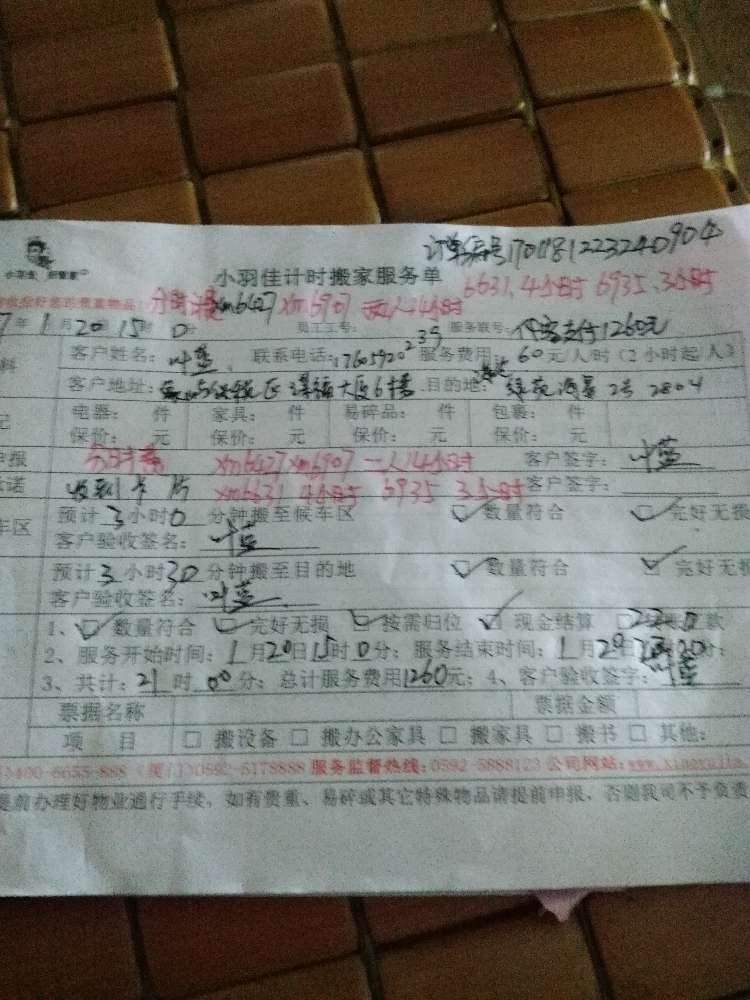 订单编号170118122324 0904
小羽佳 好管家
小羽佳计时搬家服务单
6631.4小时 6935.3小时
分时 xm6427 xm6907 两人14小时
7年1月20日15时0分 员工工号: 服务账号: 代客支付1260元
客户姓名: 叶蓝 联系电话: 17605920239 服务费用: 60元/人/时(2小时起/人)
客户地址: 大厦6楼 目的地: 绿苑海景2号2804
电器: 件 家具: 件 易碎品: 件 包裹: 件
保价: 元 保价: 元 保价: 元 保价: 元
申报 xm6427 xm6907 二人14小时 客户签字: 叶蓝
诺 收到卡片 xm6631 4小时 6935 3小时 客户签字:
车区 预计3小时0分钟搬至候车区 数量符合 完好无损
客户验收签名: 叶蓝
预计3小时30分钟搬至目的地 数量符合 完好无损
客户验收签名: 叶蓝
1、数量符合 完好无损 按需归位 现金结算 款
2、服务开始时间: 1月20日15时0分; 服务结束时间: 1月29日
3、共计: 21时00分; 总计服务费用1260元; 4、客户验收签字: 叶蓝
票据名称 票据金额
项 目 □ 搬设备 □ 搬办公家具 □ 搬家具 □ 搬书 □ 其他:
400-6655-888 (厦门)0592-5178888 服务监督热线: 0592-5888123 公司网站: www.xiaoyujia.
提前办理好物业通行手续, 如有贵重、易碎或其它特殊物品请提前申报, 否则我司不予负责